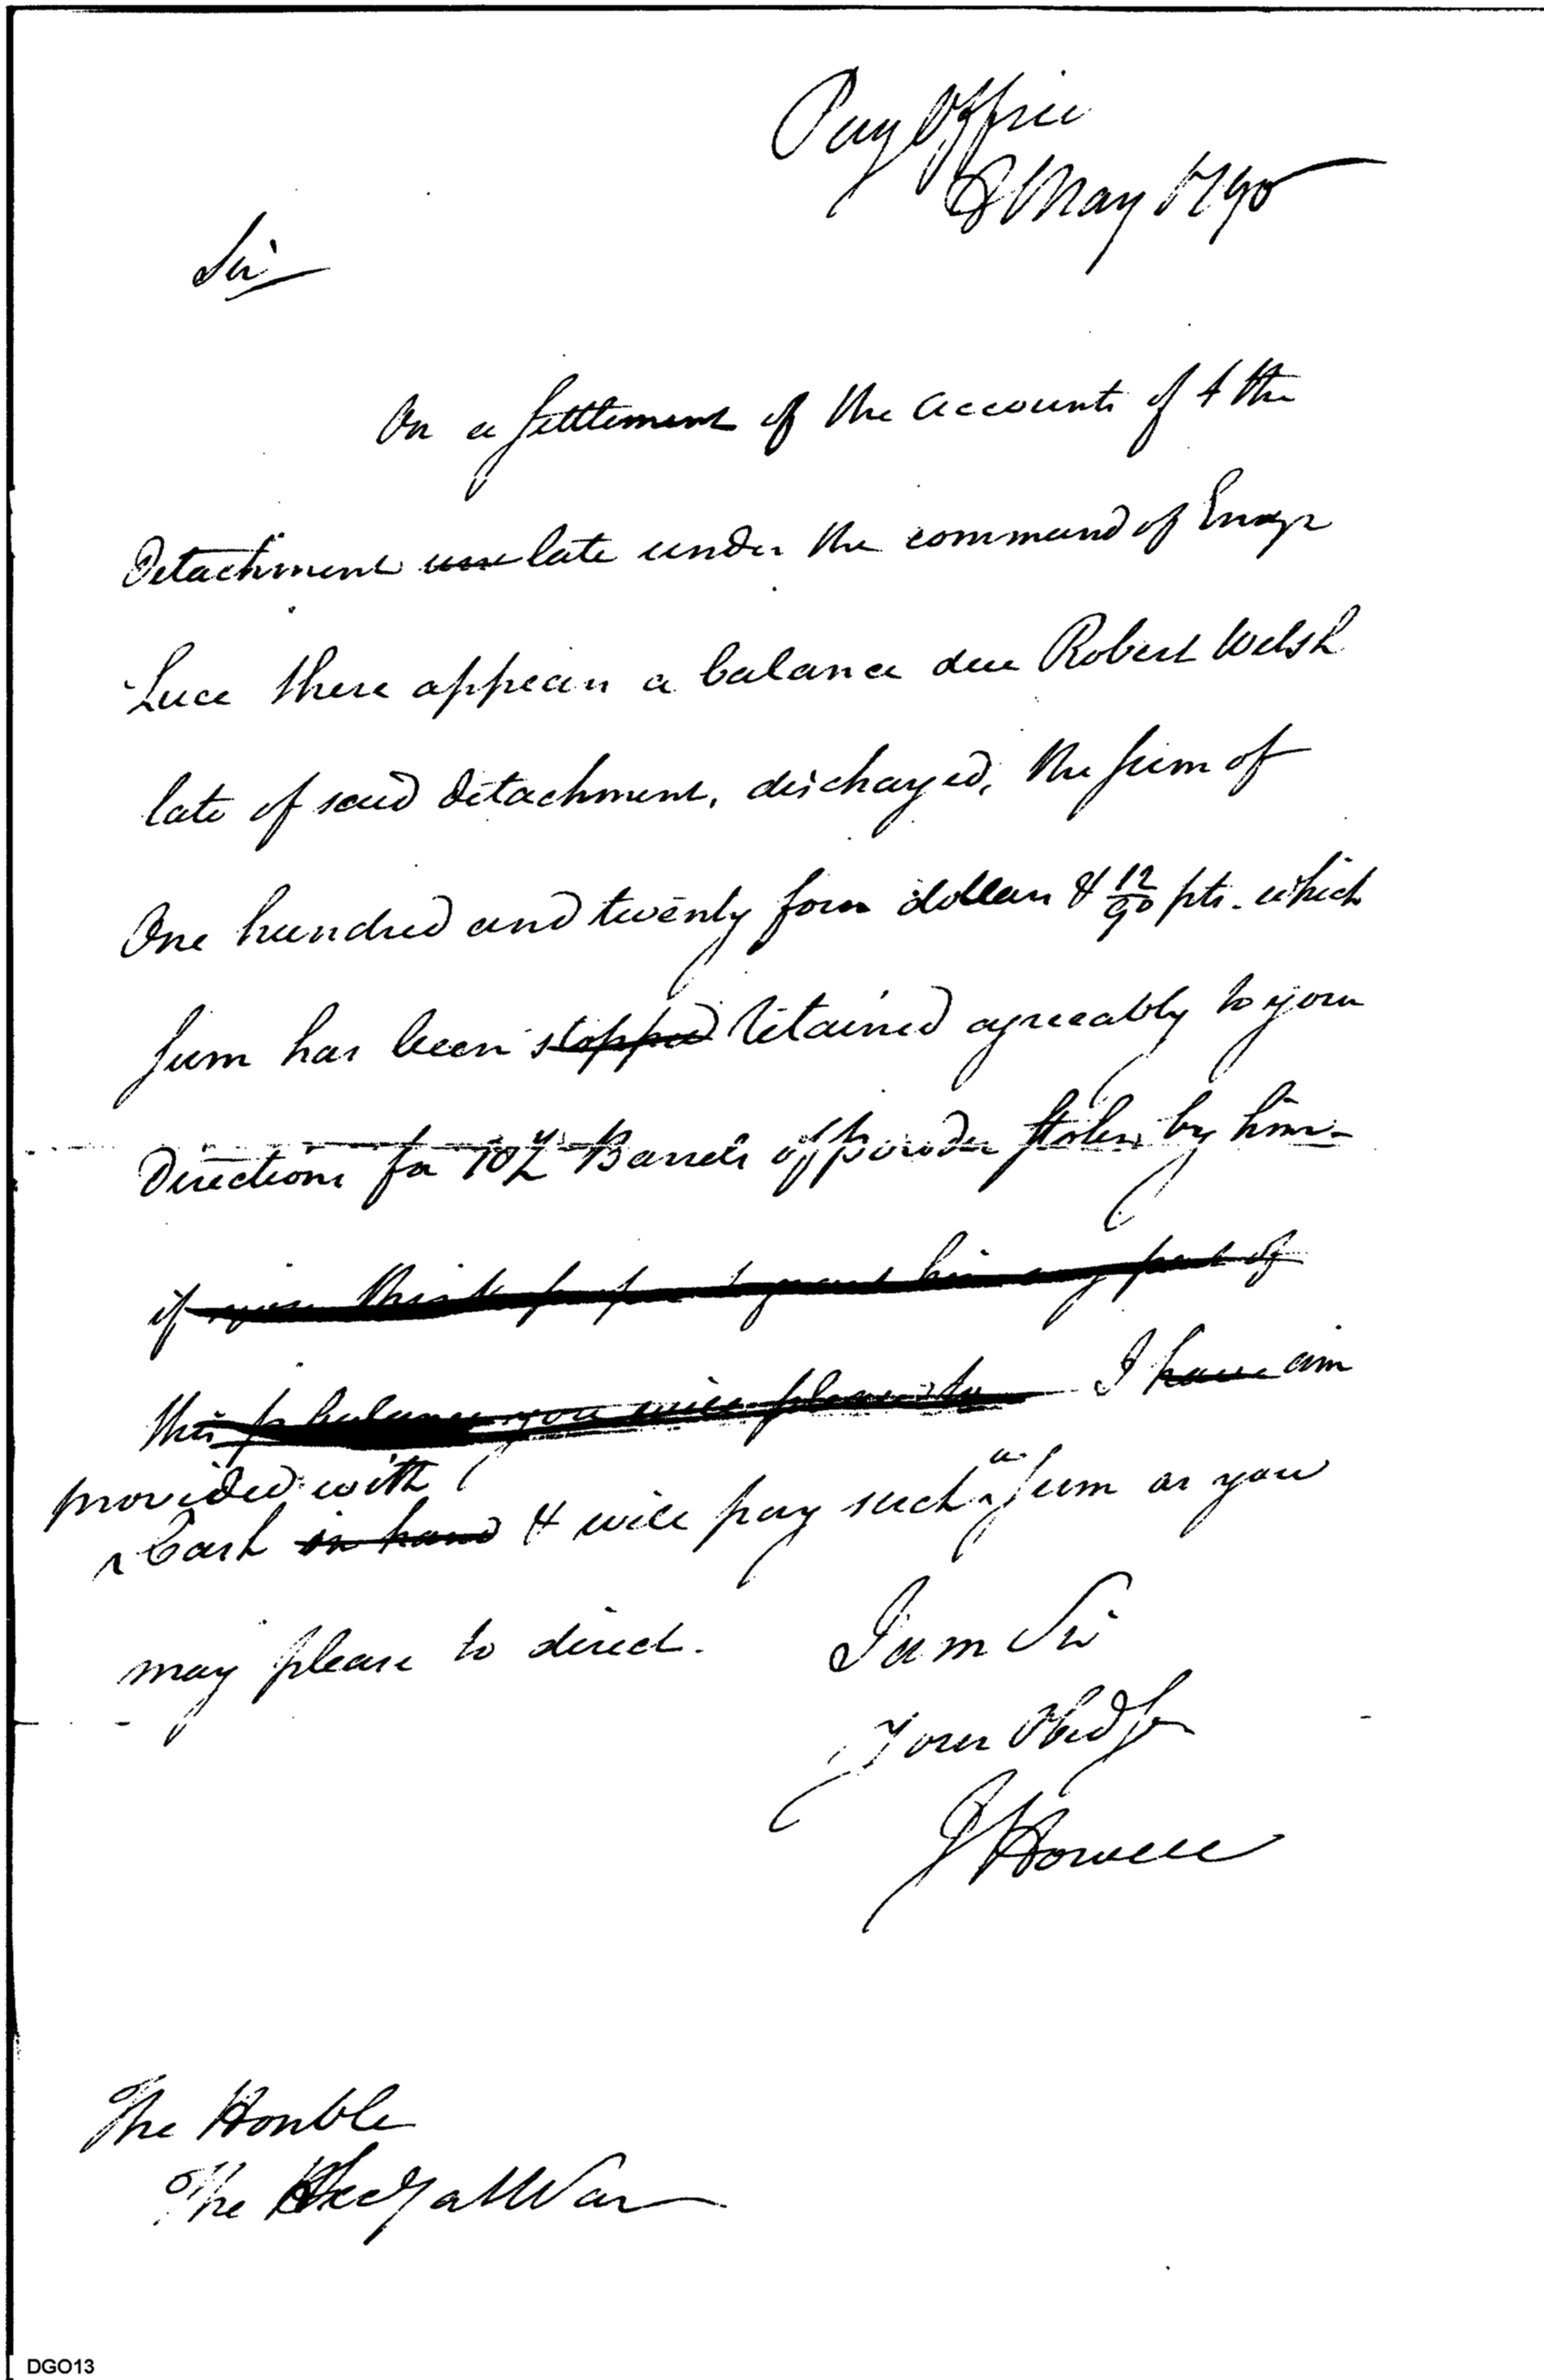 Pay Office
8 May 1790
Sir
On a Settlement of the accounts of the
Detachment late under the command of Ensgn
Luce there appears a balance due Robert Welsh
late of said Detachment, discharged, the sum of
One hundred and twenty four dollars & 12/90 pts. which
sum has been stopped retained agreeably to your
Directions for Barrels of powder stolen by him
if you think proper to grant him any part of
this balance you will please to I have am
provided with
Cash in hand & will pay such a sum as you
may please to direct.
I am Sir
Your Obed Sr
J Howell
The Honble
The Secy at War
DGO13